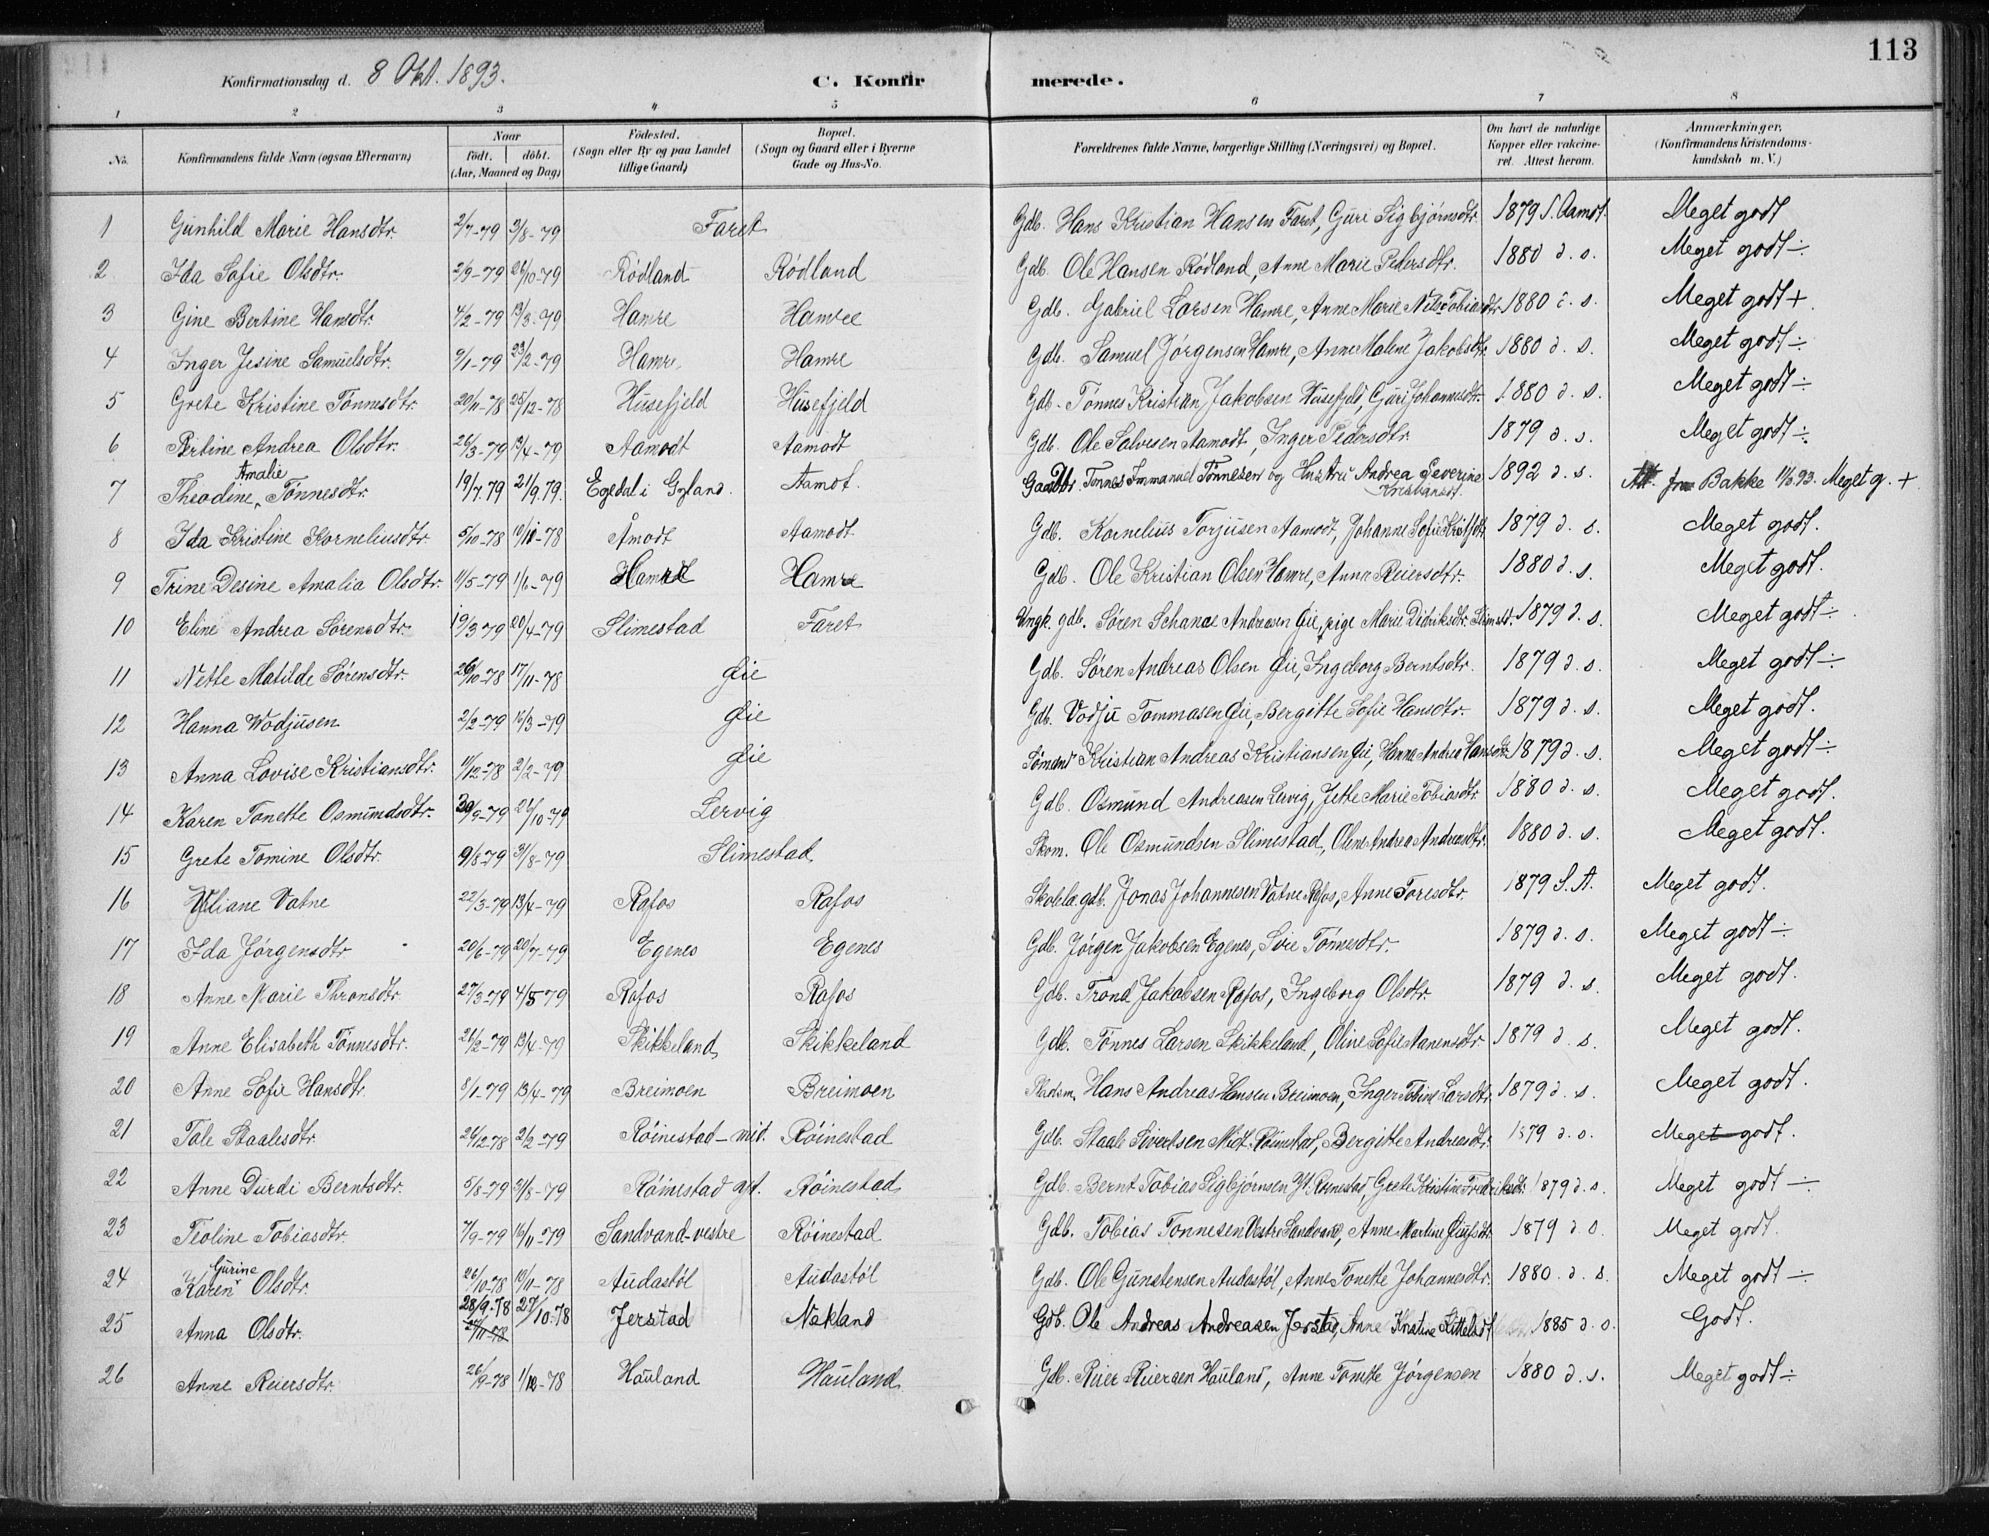 113
Konfirmationsdag d. 8 Okt. 1893. C. Konfirmerede.
1 2 3 4 5 6 7 8
No. Konfirmandens fulde Navn (ogsaa Efternavn) Naar født. døbt. (Aar, Maaned og Dag) Fødested. (Sogn eller By og paa Landet tillige Gaard) Bopæl. (Sogn og Gaard eller i Byerne Gade og Hus-No. Forældrenes fulde Navne, borgerlige Stilling (Næringsvei) og Bopæl. Om havt de naturlige Kopper eller vakcineret. Attest herom. Anmærkninger. (Konfirmandens Kristendomskundskab m. V.)
1 Gunhild Marie Hansdtr. 2/7-79 3/8-79 Faret Gdb. Hans Kristian Hansen Faret, Guri Sigbjørnsdtr. 1879 S. Aamot. Meget godt
2 Ida Sofie Olsdtr. 2/9-79 26/10-79 Rødland Rødland Gdb. Ole Hansen Rødland, Anne Marie Pedersdtr. 1880 d. s. Meget godt ÷
3 Gine Bertine Hansdtr. 4/2-79 13/3-79 Hamre Hamre Gdb. Gabriel Larsen Hamre, Anne Marie Tobiasdtr 1880 d. s. Meget godt +
4 Inger Jesine Samuelsdtr. 9/1-79 23/2-79 Hamre Hamre Gdb. Samuel Jørgensen Hamre, Anne Malene Jakobsdtr. 1880 d. s. Meget godt ÷
5 Grete Kristine Tønnesdtr. 20/11-78 25/12-78 Husefjeld Husefjeld Gdb. Tønnes Kristian Jakobsen Husefjeld, Guri Johannesdtr. 1880 d. s. Meget godt ÷
6 Bertine Andrea Olsdtr. 26/3-79 13/4-79 Aamodt Aamodt Gdb. Ole Salvesen Aamodt, Inger Pedersdtr 1879 d. s. Meget godt ÷
7 Theodine Amalie Tønnesdtr. 19/7 79 21/9 79. Egedal i Gyland. Aamot. Gaardbr. Tønnes Immanuel Tønnesen og Hustru Andrea Severine Kristiansdt. 1892 d. s. Att. fra Bakke 11/3 93. Meget g. +
8 Ida Kristine Korneliusdtr. 5/10-78 10/11-78 Åmodt Aamodt Gdb. Kornelius Torjusen Aamodt, Johanne Sofie 1879 d. s. Meget godt.
9 Trine Desine Amalia Olsdtr. 11/5-79 1/6-79 Hamre Hamre Gdb. Ole Kristian Olsen Hamre, Anne Reiersdtr. 1880 d. s. Meget godt.
10 Eline Andrea Sørensdtr. 19/3 79 20/4-79 Slimestad Faret Ungk. gdb. Søren Schanae Andreasen Øie, pige Marie Didriksdtr. Slimst. 1879 d. s. Meget godt ÷
11 Nette Matilde Sørensdtr. 26/10-78 17/11-78 Øie Gdb. Søren Andreas Olsen Øie, Ingeborg Berntsdtr. 1879 d. s. Meget godt ÷
12 Hanna Wodjusen 2/2-79 16/3-79 Øie Gdb. Vodju Tommasen Øie, Bergitte Sofie Hansdtr. 1879 d. s. Meget godt.
13 Anna Lovise Kristiansdtr. 11/12-78 2/2-79 Øie Sømand Kristian Andreas Kristiansen Øie, Hanna Andrea Hansdtr 1879 d. s. Meget godt ÷
14 Karen Tonette Osmundsdtr. 30/9-79 26/10-79 Lervig Gdb. Osmund Andreasen Lervig, Jette Marie Tobiasdtr 1880 d. s. Meget godt.
15 Grete Tomine Olsdtr. 9/8-79 31/8-79 Slimestad Skom. Ole Osmundsen Slimestad, Olene Andrea Andreasdtr. 1880 d. s. Meget godt.
16 Juliane Vatne 22/3-79 13/4-79 Rafos Rafos Skolelæ. gdb. Jonas Johannesen Vatne Rafos, Anne Toresdtr. 1879 S. A. Meget godt.
17 Ida Jørgensdtr 20/6-79 20/7-79 Egenes Egenes Gdb. Jørgen Jakobsen Egenes, Sire Tønnesdtr. 1879 d. s. Meget godt ÷
18 Anne Marie Thronsdtr. 27/3-79 4/5 79 Rafos Rafos Gdb. Trond Jakobsen Rafos, Ingeborg Olsdtr. 1879 d. s. Meget godt.
19 Anne Elisabeth Tønnesdtr. 26/2-79 13/4-79 Skikkeland Skikkeland Gdb. Tønnes Larsen Skikkeland, Oline Sofie Nanensdtr 1879 d. s. Meget godt.
20 Anne Sofie Hansdtr. 8/1-79 13/4-79 Breimoen Breimoen Hans Andreas Hansen Breimoen, Inger Tobine Larsdtr. 1879 d. s. Meget godt.
21 Tale Staalesdtr. 26/12 78 2/2-79 Røinestad-mid. Røinestad Gdb. Staale Sivertsen Midt. Røinestad, Bergitte Andreasdtr. 1879 d. s. Meget godt.
22 Anne Durdi Berntsdtr. 5/8-79 31/8-79 Røinestad yt. Røinestad Gdb. Bernt Tobias Sigbjørnsen Yt. Røinestad, Grete Kristine Fredriksdt. 1879 d. s. Meget godt ÷
23 Teoline Tobiasdtr 7/9-79 16/11-79 Sandvand-vestre Røinestad Gdb. Tobias Tønnesen Vestre Sandvand, Anne Martine 1879 d. s. Meget godt.
24 Karen Gurine Olsdtr. 26/10-78 10/11-78 Audastøl Audastøl Gdb. Ole Gunstensen Audastøl, Anne Tonette Johannesdtr. 1880. d. s. Meget godt ÷
25 Anna Olsdtr. 28/9-78 27/10-78 Jerstad Nekland Gdb. Ole Andreas Andreasen Jerstad, Anne 1885 d. s. Godt.
26 Anne Reiersdtr. 26/9-78 1/12-78 Hauland Hauland Gdb. Reier Reiersen Hauland, Anne Tonette Jørgensen 1880 d. s. Meget godt ÷